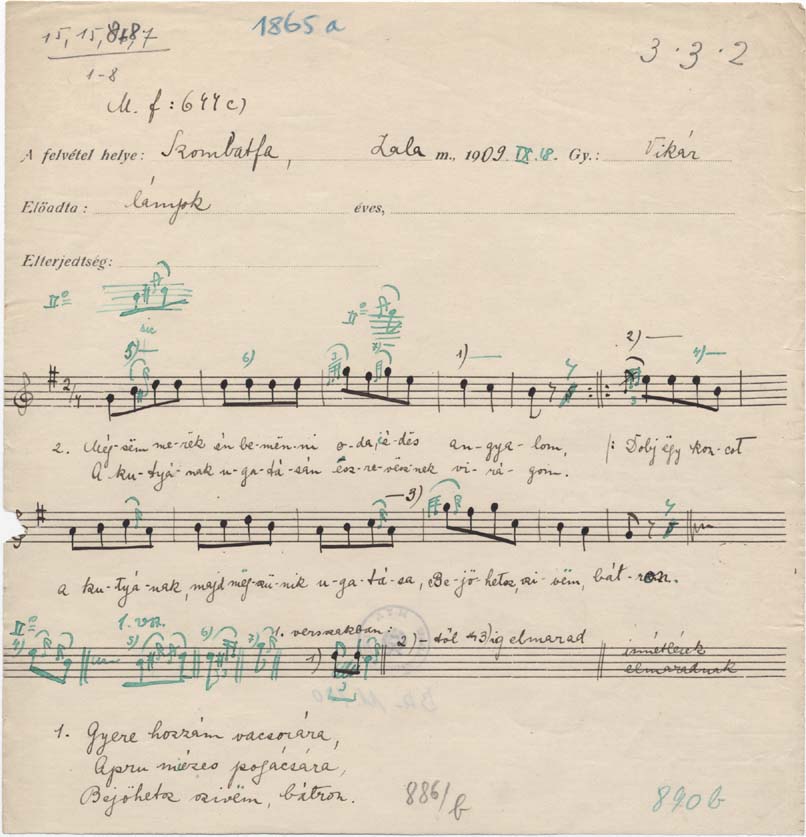 1865 a
15, 15, 8, 8, 7
3 · 3 · 2
1-8
M. f : 644 c)
A felvétel helye: Szombatfa, Zala m., 1909. IX. 18. Gy.: Vikár
Előadta: lányok éves,
Elterjedtség:
II°
II°
sic
5) 6) 1) 2)
2/4
2. Még-sëm me-rëk én be-mën-ni o-da, é-dës an-gya-lom, |: Dobj ëgy kon-cot
A ku-tyá-nak u-ga-tá-sán ész-re-vësz-nek vi-rá-gom.
3)
a ku-tyá-nak, majd mëg-szű-nik u-ga-tá-sa, Be-jö-hetsz, szi-vëm, bát-ron.
II° 1. vsz.
1. versszakban: 1) 2)-től 3)ig elmarad ismétlések
elmaradnak
1. Gyere hozzám vacsorára,
Apru mézes pogácsára,
Bejöhetsz szivëm, bátron.
886/b
890 b